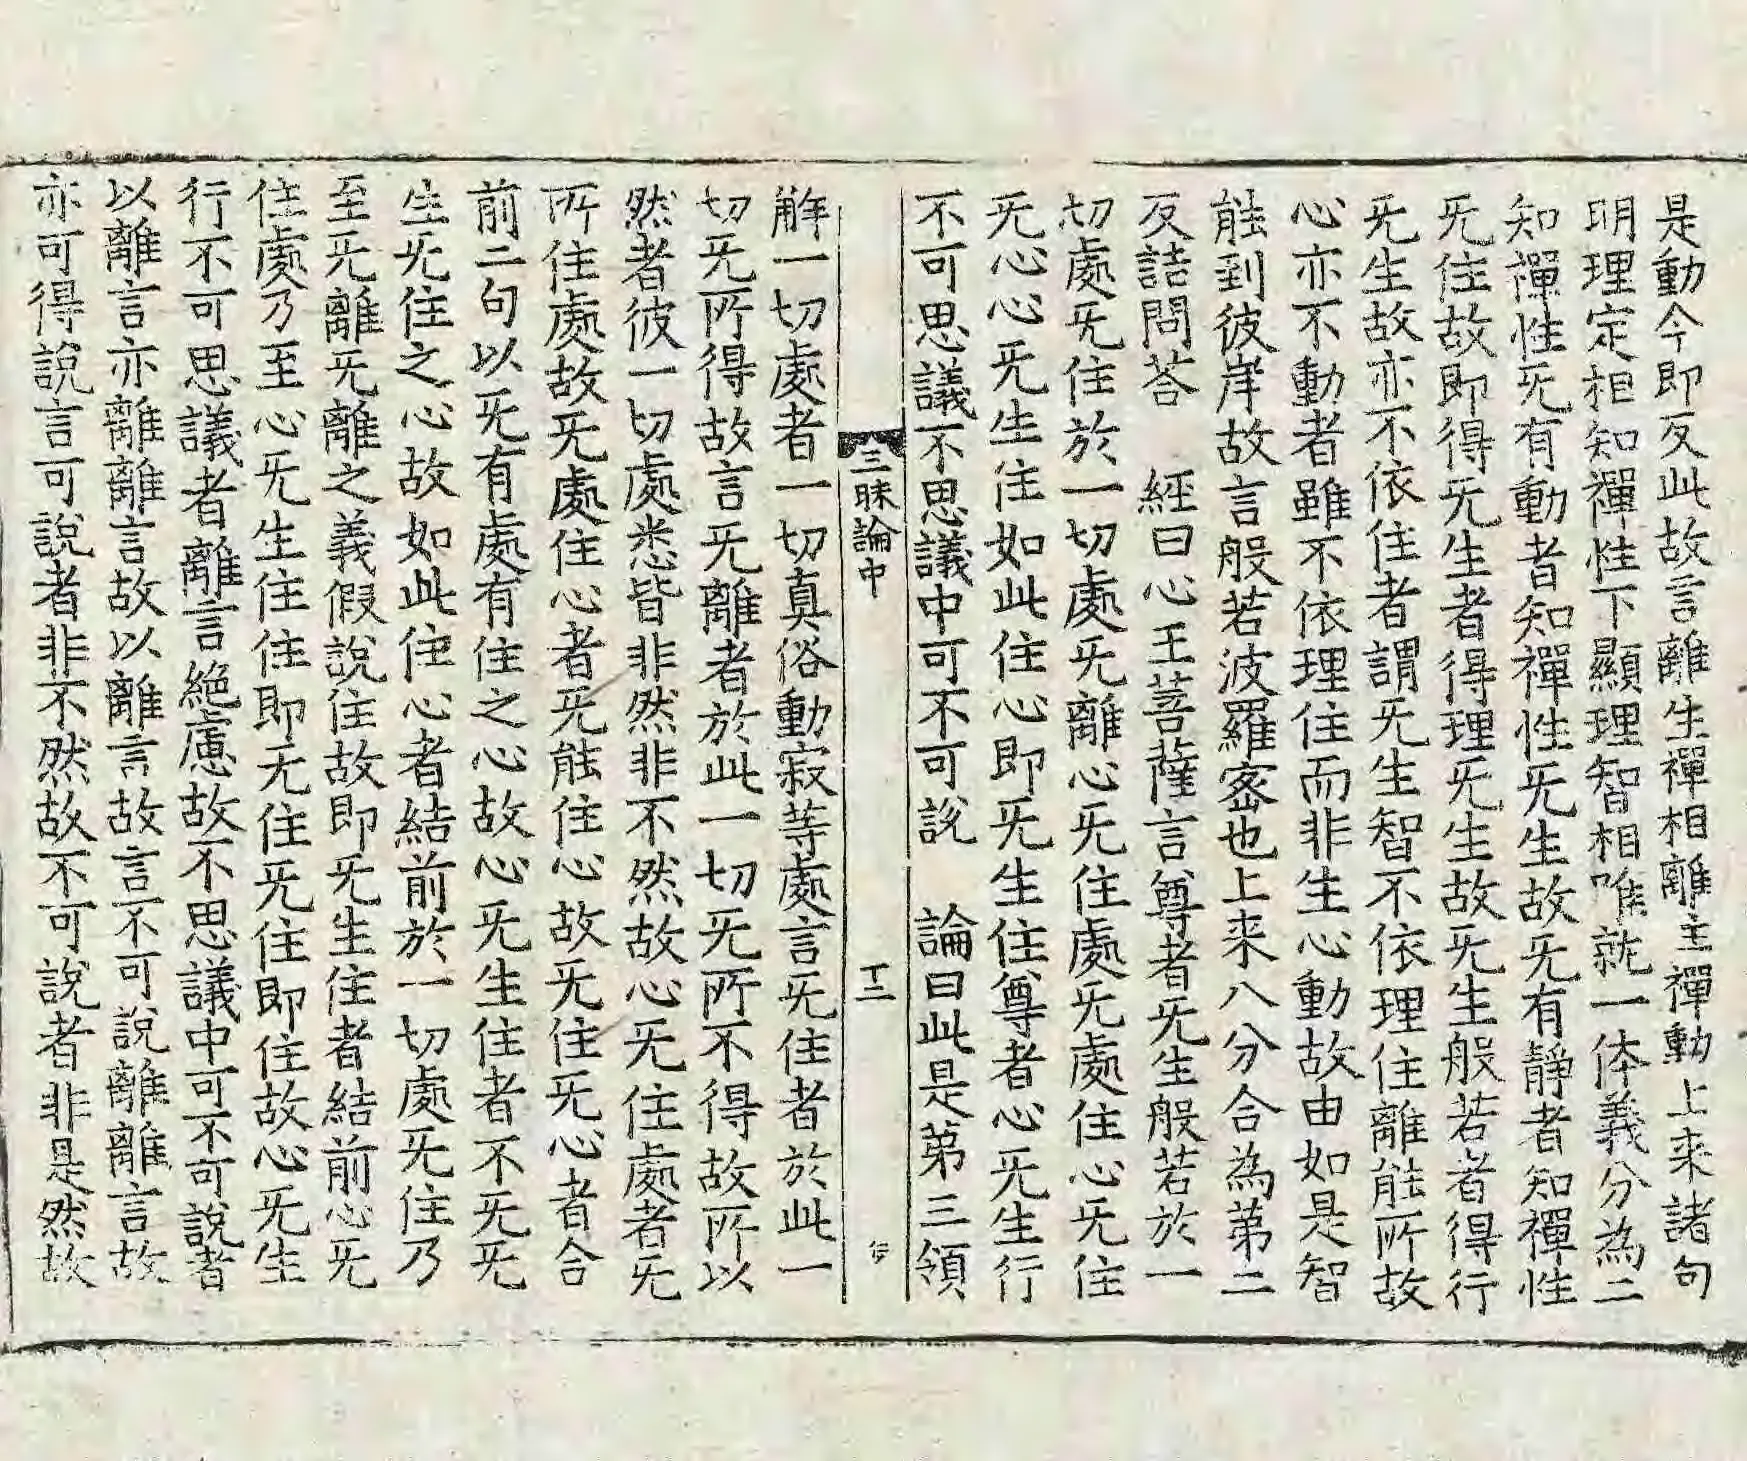 是動今即反此故言離生禪相離生禪動上来諸句
明理定相知禪性下顯理智相唯就一体義分為二
知禪性旡有動者知禪性旡生故旡有靜者知禪性
旡住故即得旡生者得理旡生故旡生般若者得行
旡生故亦不依住者謂旡生智不依理住離能所故
心亦不動者雖不依理住而非生心動故由如是智
能到彼岸故言般若波羅宻也上来八分合為第二
反詰問荅　經曰心王菩薩言尊者旡生般若於一
切處旡住於一切處旡離心旡住處旡處住心旡住
旡心心旡生住如此住心即旡生住尊者心旡生行
不可思議不思議中可不可說　論曰此是第三領
三昧論中　十二　行
解一切處者一切真俗動寂等處言旡住者於此一
切旡所得故言旡離者於此一切旡所不得故所以
然者彼一切處悉皆非然非不然故心旡住處者旡
所住處故旡處住心者旡能住心故旡住旡心者合
前二句以旡有處有住之心故心旡生住者不旡旡
生旡住之心故如此住心者結前於一切處旡住乃
至旡離旡離之義假說住故即旡生住者結前心旡
住處乃至心旡生住住即旡住旡住即住故心旡生
行不可思議者離言絶慮故不思議中可不可說者
以離言亦離離言故以離言故言不可說離離言故
亦可得說言可說者非不然故不可說者非是然故